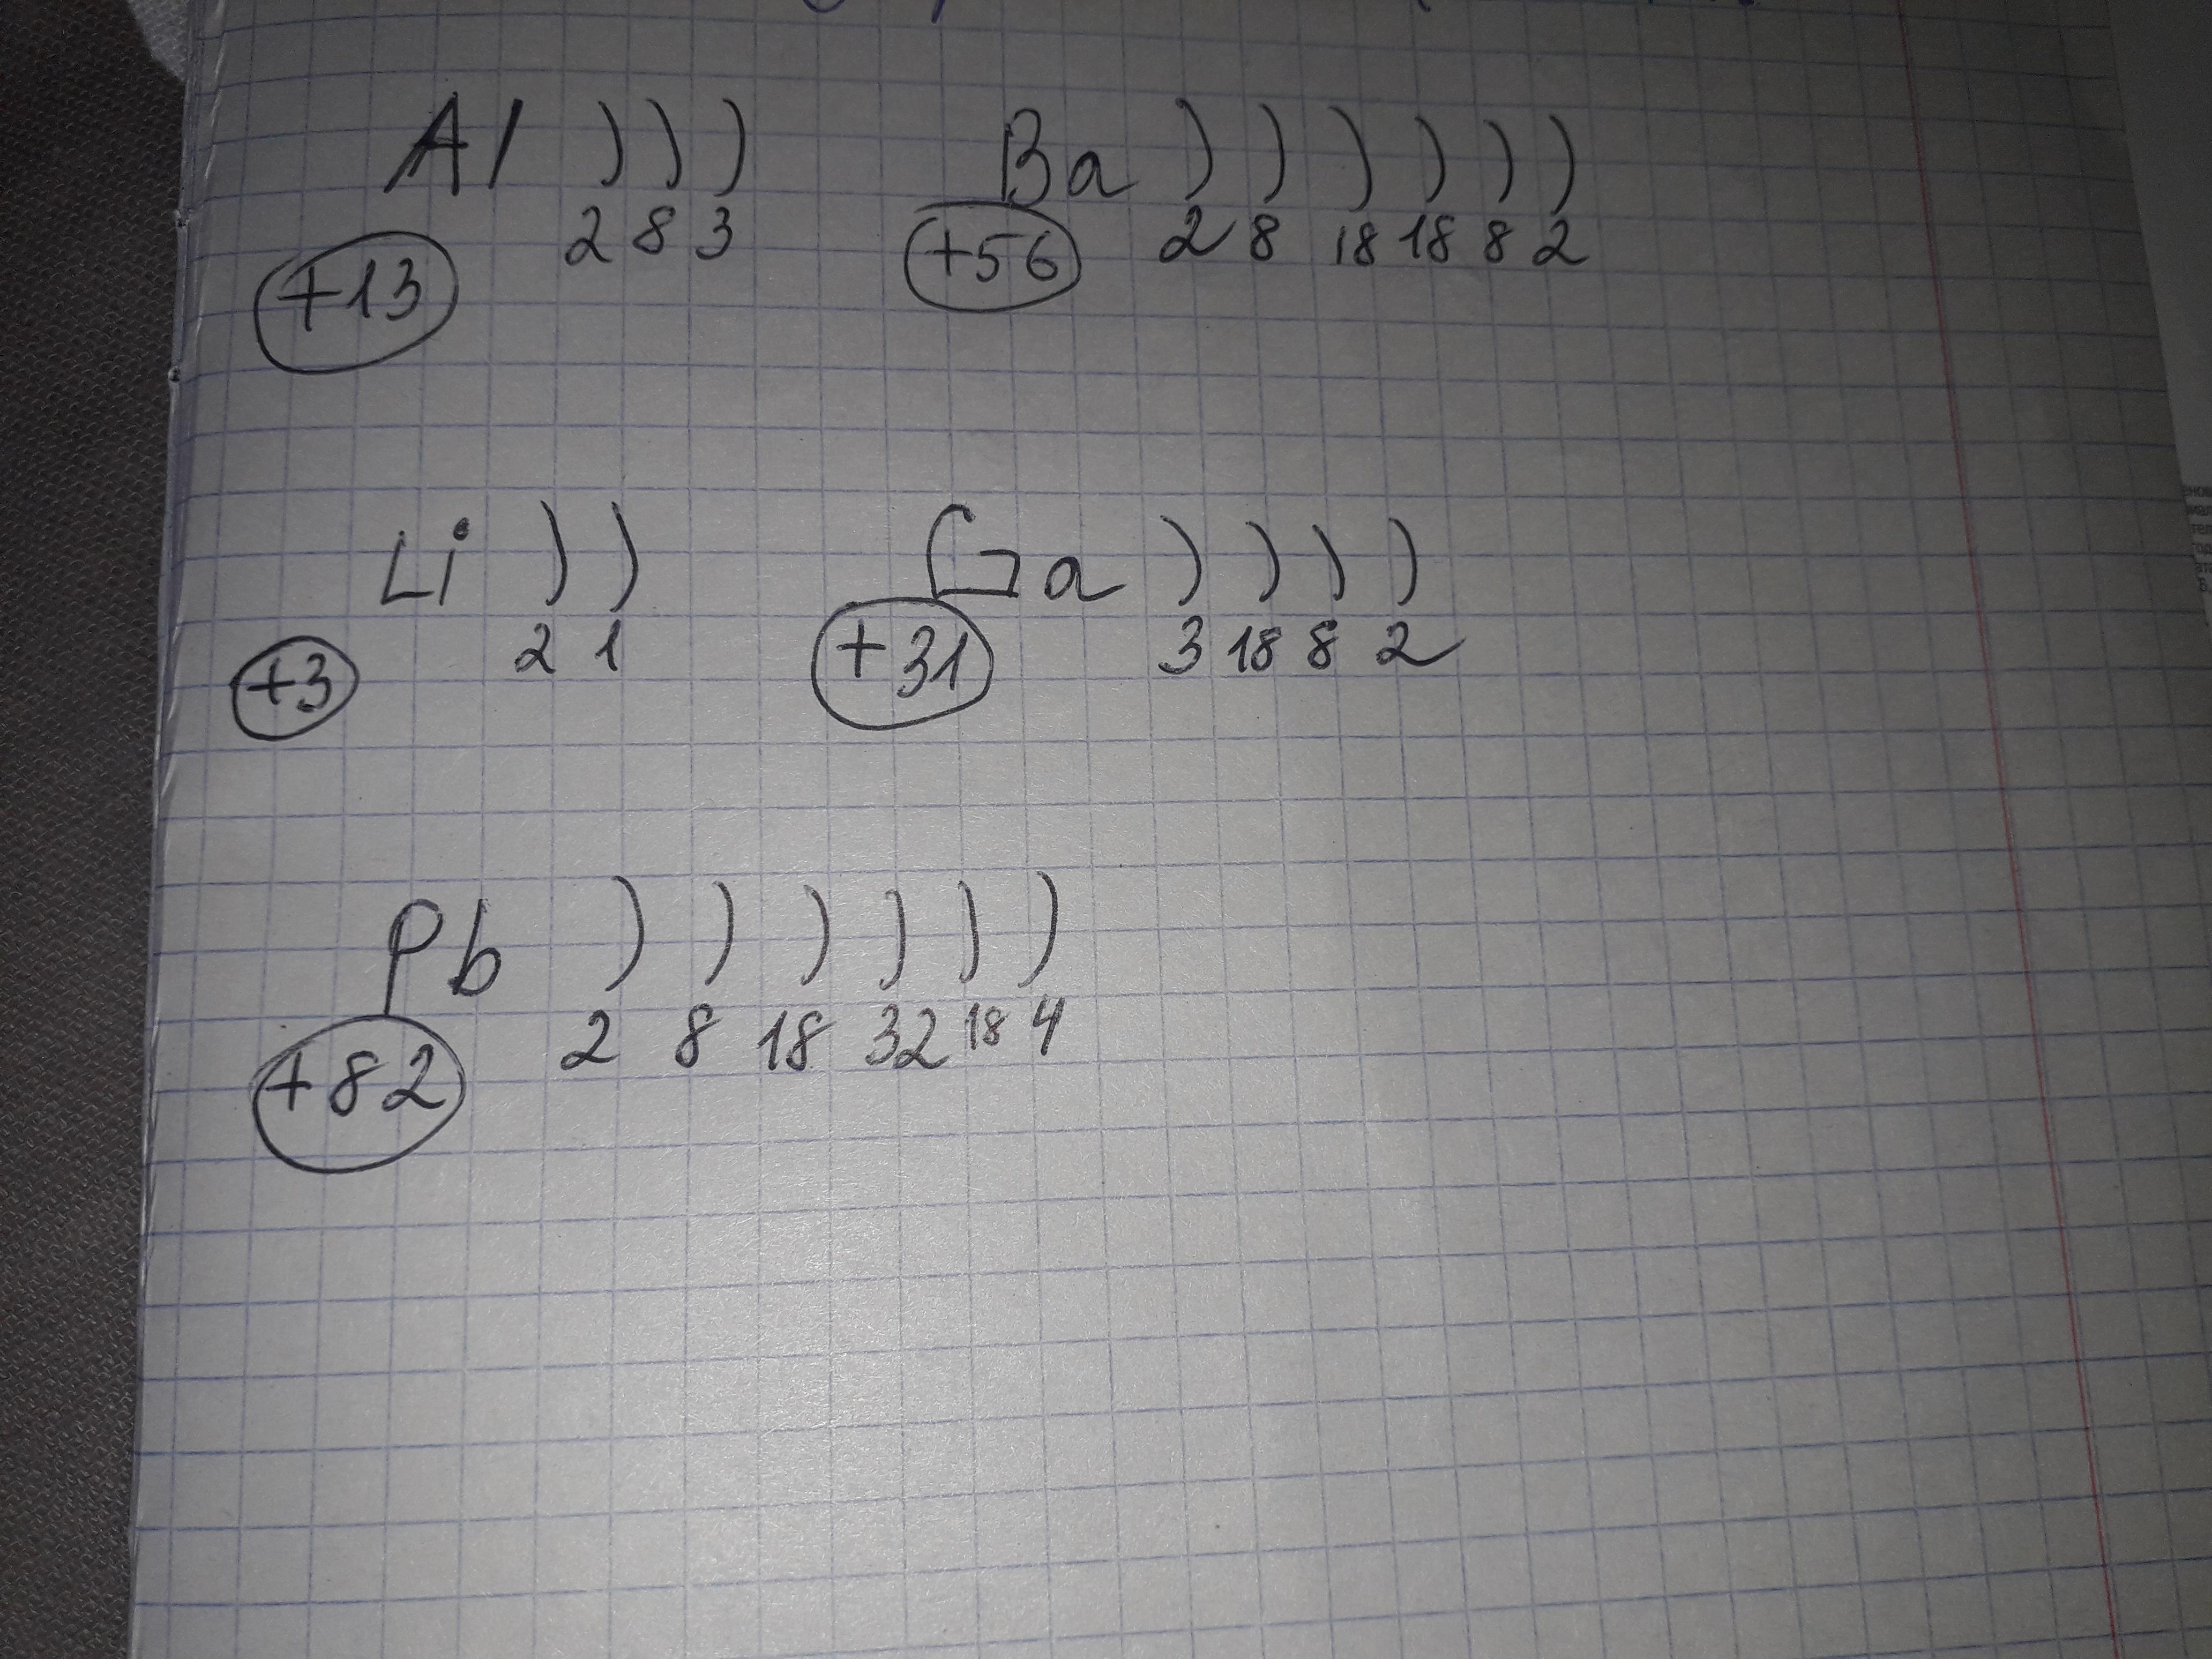 Al ) ) ) Ba ) ) ) ) ) )
2 8 3 2 8 18 18 8 2
+13 +56
Li ) ) Ga ) ) ) )
2 1 3 18 8 2
+3 +31
Pb ) ) ) ) ) )
2 8 18 32 18 4
+82